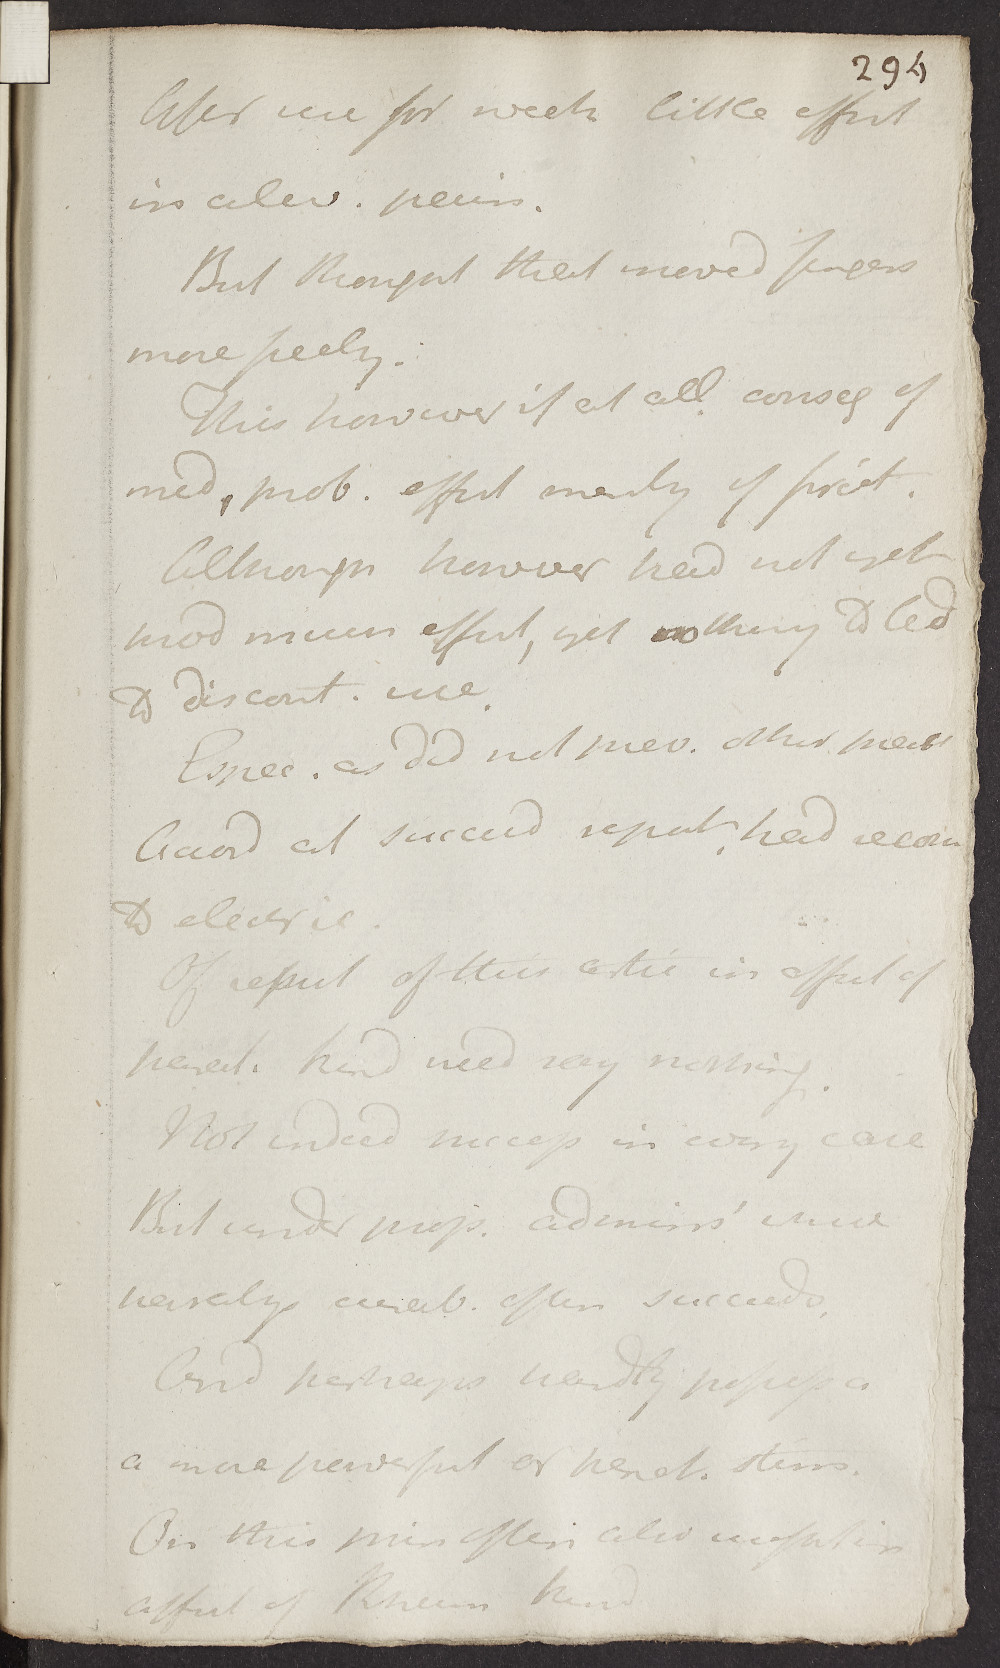 294
After use for week little effect
in alev. pain.
But thought that moved fingers
more freely.
This however if at all conseq of
med, prob. effect merely of frict.
Although however had not yet
prod much effect, yet nothing to lead
to discont. use.
Espec. as did not prev. other pract
Accord at succeed report, had recom
to electric.
Of repeat of this artic in affect of
paral. kind need say nothing.
Not indeed success in every case
But under prop. adminis' where
curab. often succeeds,
And perhaps hardly possess a
a more powerful or penet. stim.
On this prin often also useful in
affect of Rheum kind